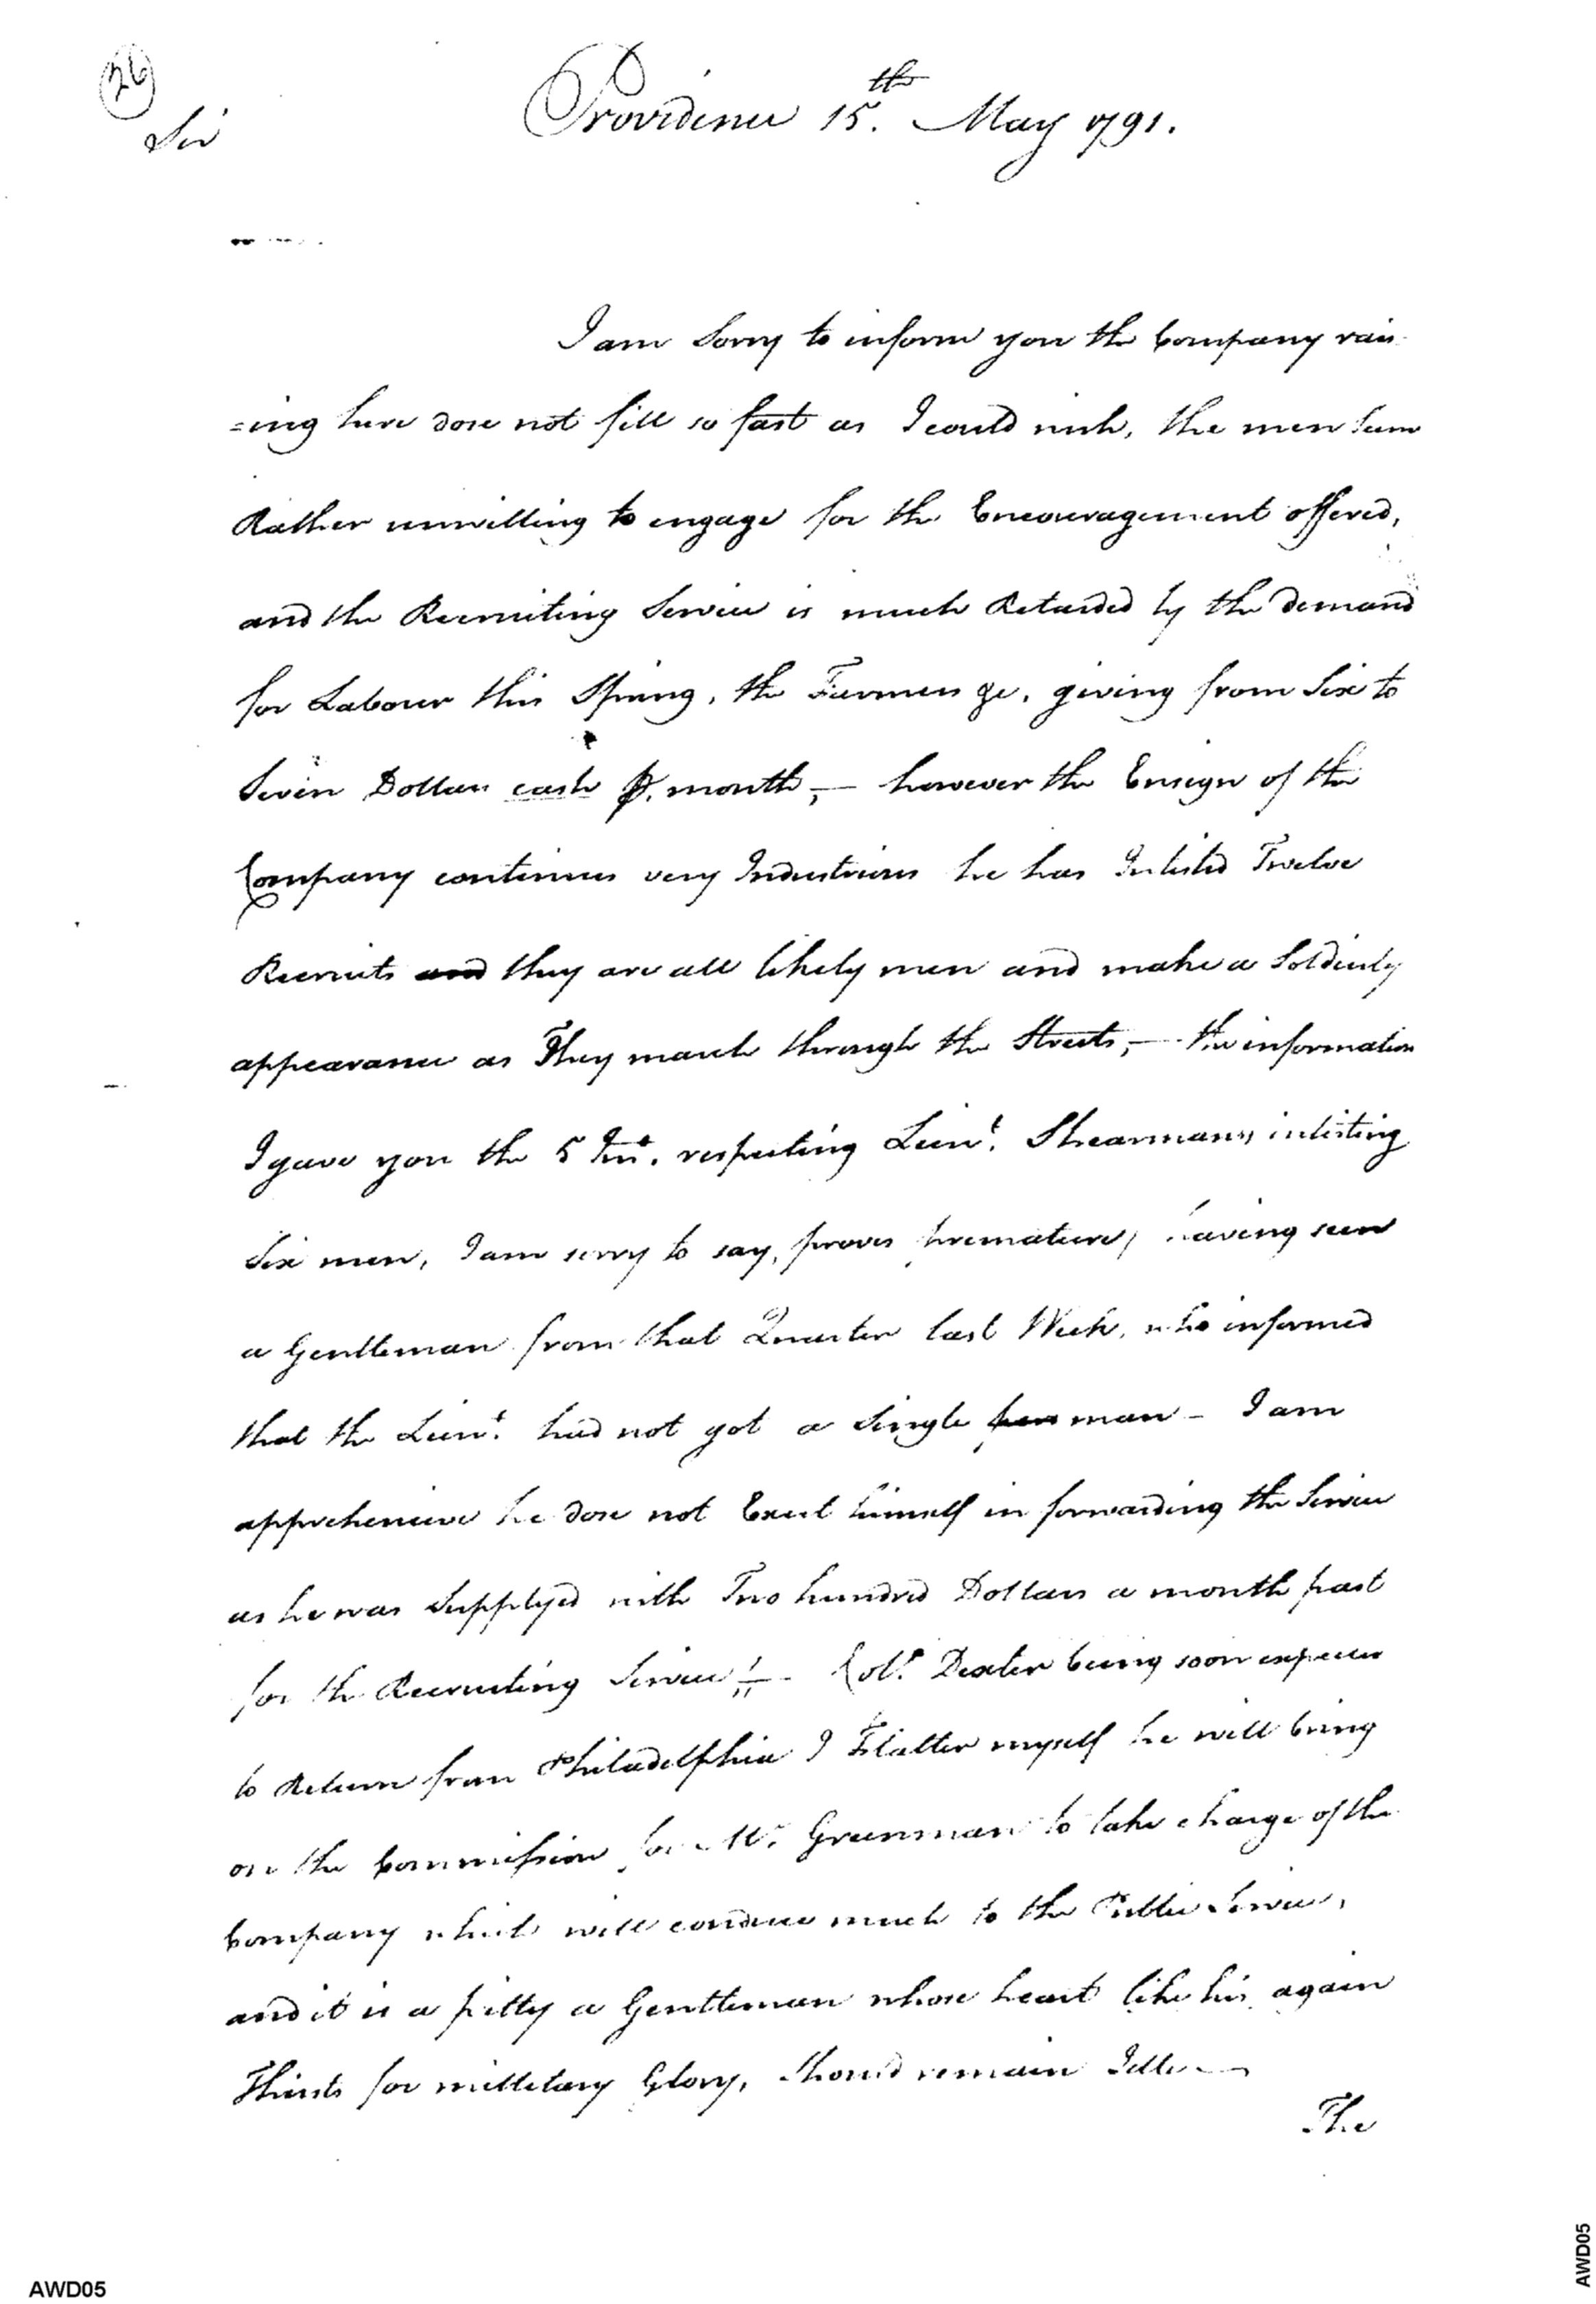 26
Providence 15.th May 1791.
Sir
I am Sorry to inform you the Company rais
=ing here dose not fill so fast as I could wish, the men seem
Rather unwilling to engage for the Encouragement offered,
and the Recruiting Service is much Retarded by the demand
for Labour this Spring, the Farmers &c. giving from Six to
Seven Dollars cash ⅌. month, — however the Ensign of the
Company continues very Industrious he has Inlisted Twelve
Recruits and they are all likely men and make a Soldierly
appearance as They march through the Streets, — the information
I gave you the 5 Inst. respecting Lieut. Shearmans inlisting
Six men, I am sorry to say, proves premature, having seen
a Gentleman from that Quarter last Week, who informed
that the Lieut. had not got a Single man – I am
apprehensive he dose not Exert himself in forwarding the Service
as he was Supplyed with Two hundred Dollars a month past
for the Recruiting Service! — Colo. Dexter being soon expected
to Return from Philadelphia I Flatter myself he will bring
on the Commission for Mr. Greenman to take charge of the
Company which will conduce much to the Public Service,
and it is a pitty a Gentleman whose heart like his again
Thirsts for milletary Glory, Should remain Idle —
The
AWD05
AWD05